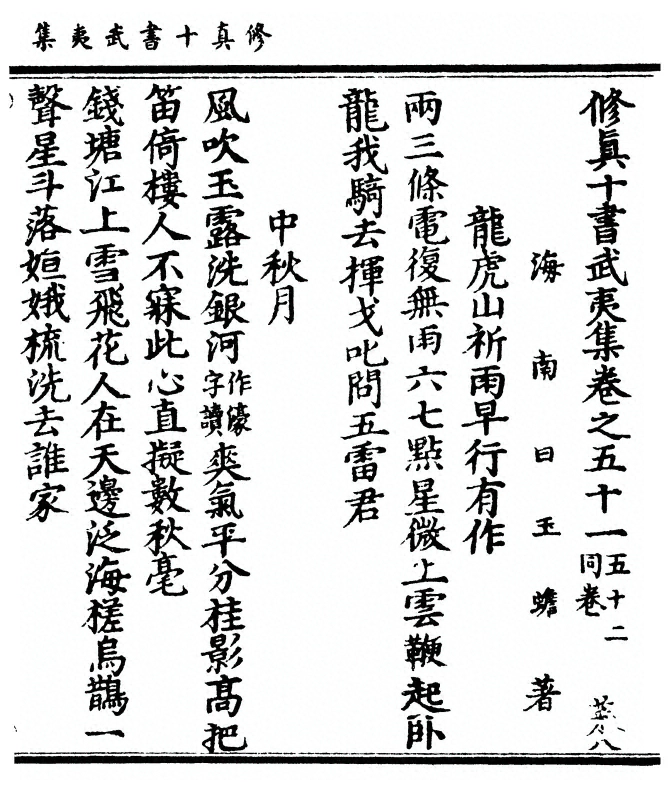 修真十書武夷集
修真十書武夷集卷之五十一五十二同卷
海南日玉蟾著
龍虎山祈雨早行有作
兩三條電復無雨六七點星微上雲鞭起卧
龍我騎去揮戈叱問五雷君
中秋月
風吹玉露洗銀河作濠字讀爽氣平分桂影髙把
笛倚樓人不寐此心直擬數秋毫
錢塘江上雪飛花人在天邊泛海槎烏鵲一
聲星斗落姮娥梳洗去誰家